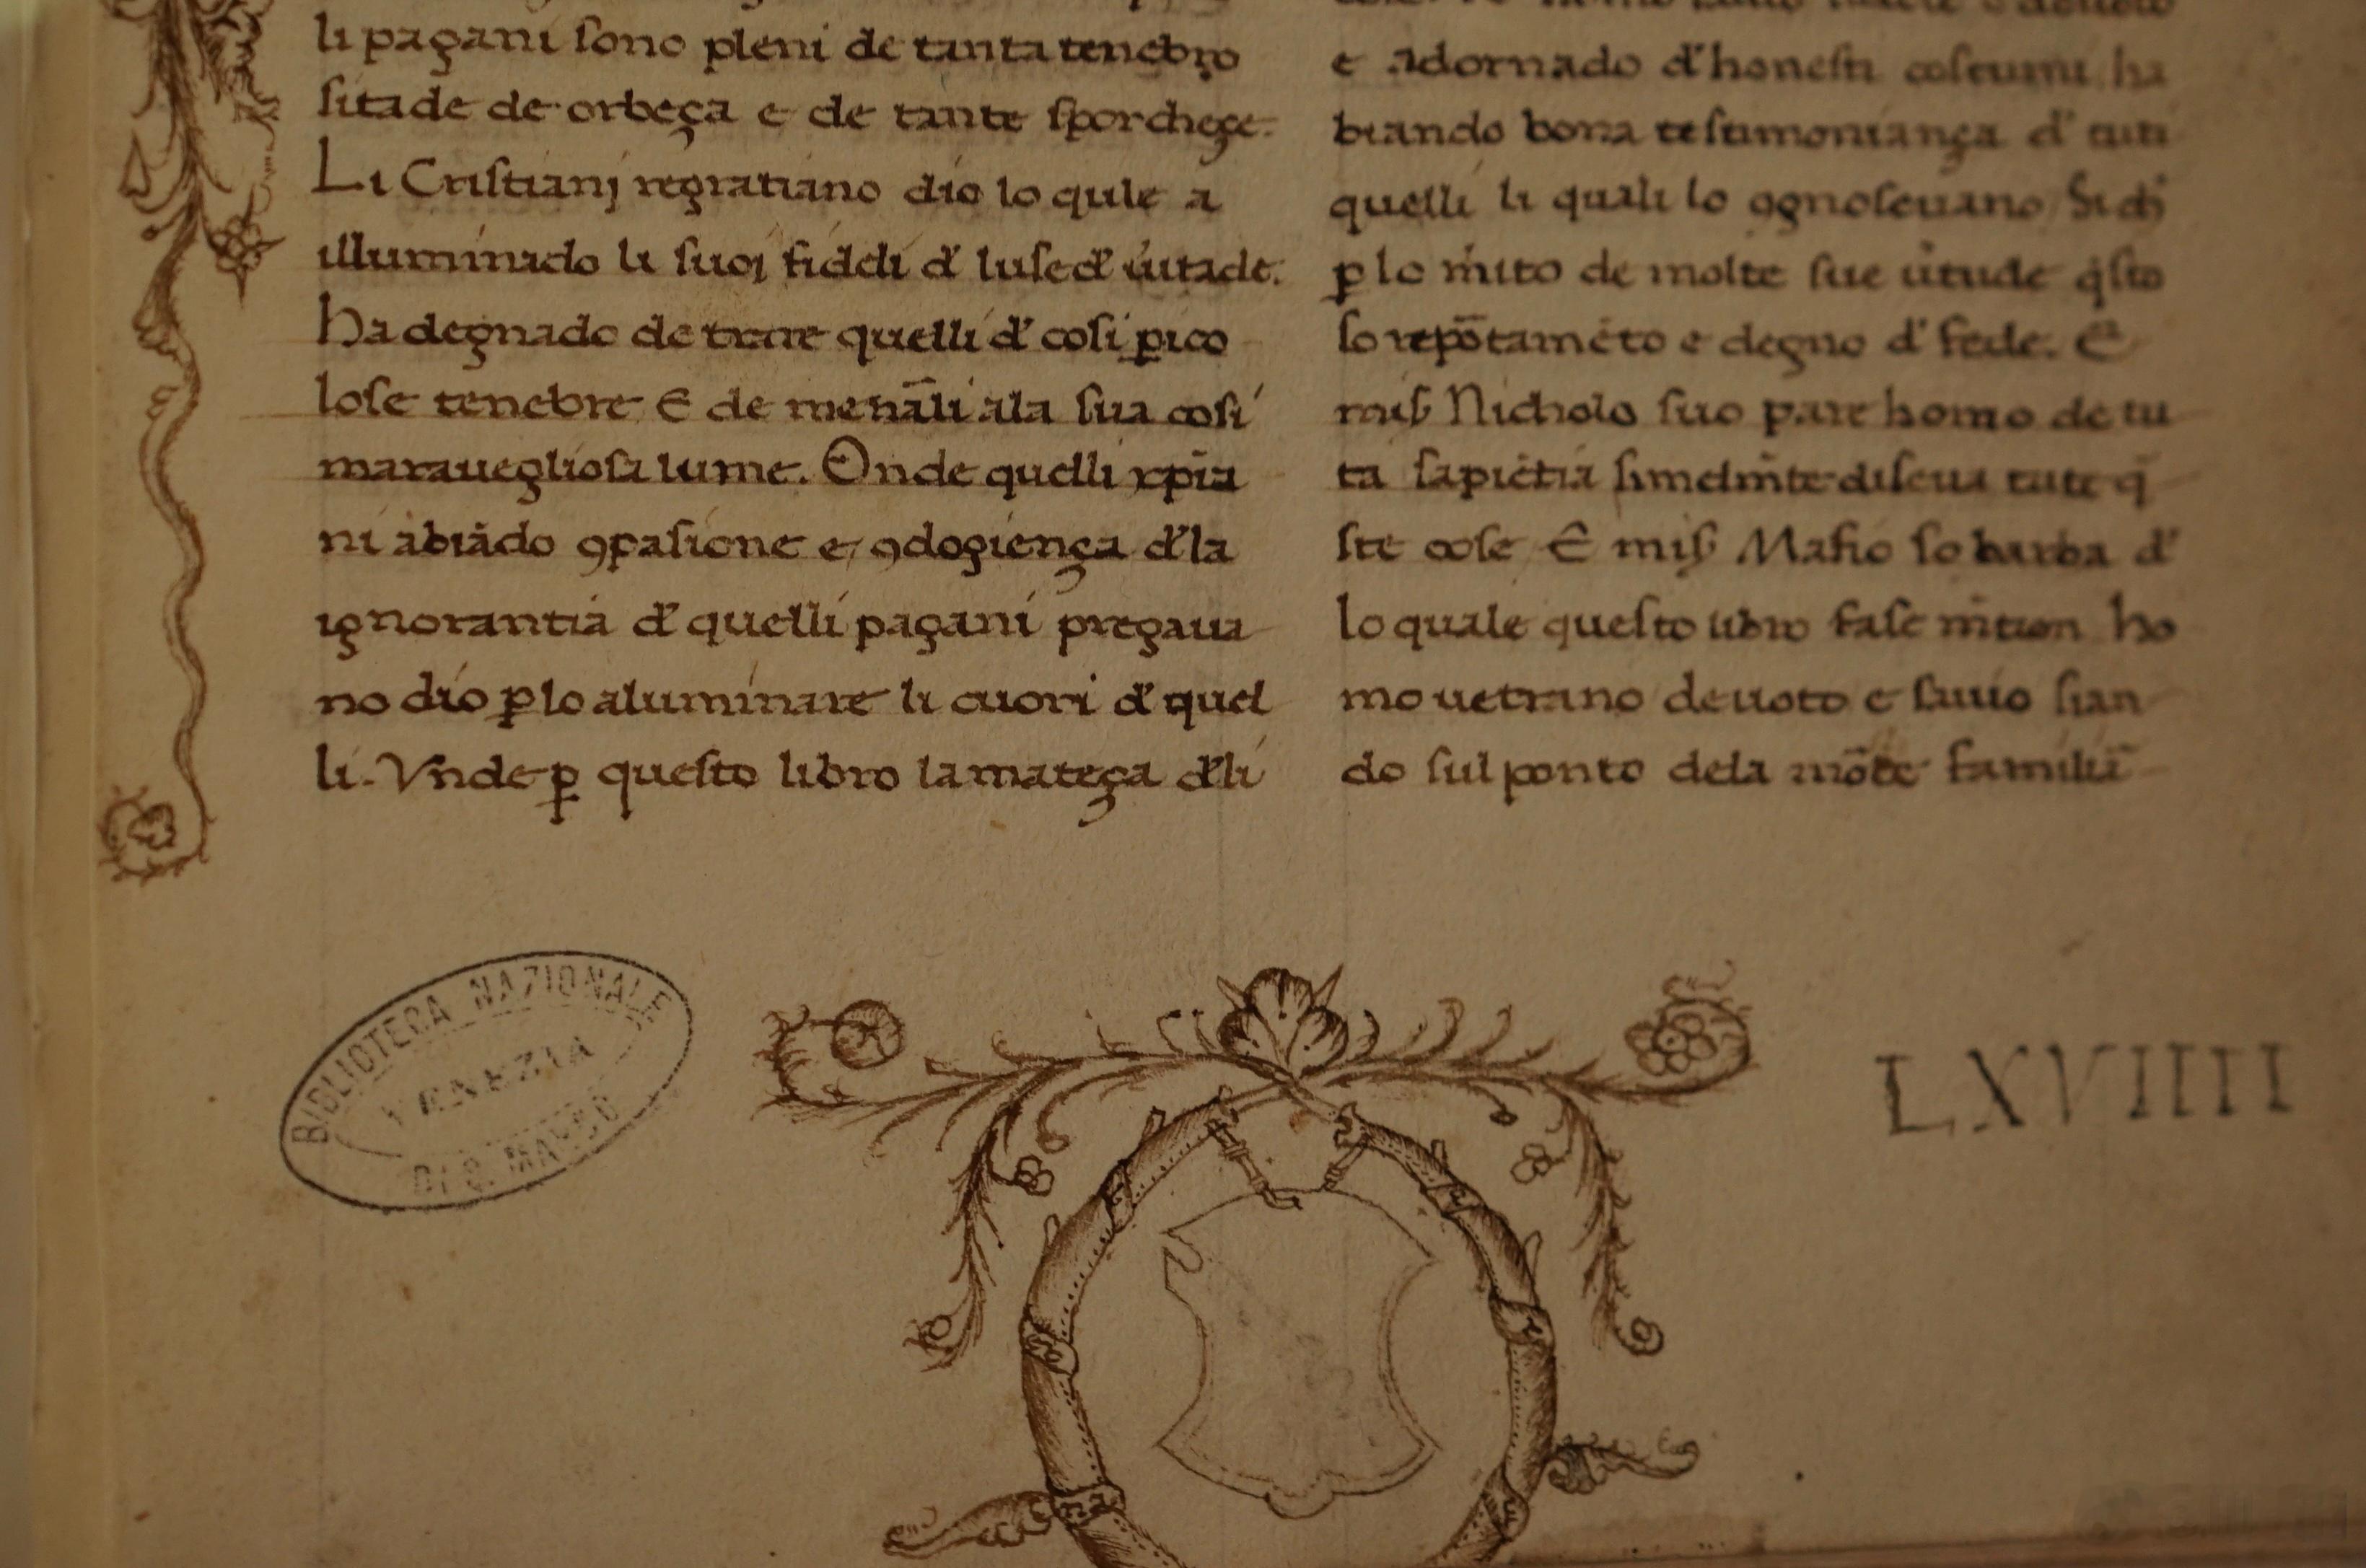 li paçani sono pleni de tanta tenebro
sitade de orbeça e de tante sporcheçe.
Li Cristianj regratiano dio lo qule a
illuminado li suoj fideli d' luse d' u'itade.
ha degnado de trare quelli d' cosi ꝑico
lose tenebre E de menāli ala sua cosi
marauegliosa lume. Onde quelli xp̄ia
ni abiādo ꝯpasione e ꝯdogiença d'la
ignorantia d' quelli pagani pregaua
no dio ꝑ lo aluminare li cuori d' quel
li. Vnde ꝑ questo libro la mateça d'li
e adornado d' honesti costumi ha
biando bona testimoniança d' tuti
quelli li quali lo ꝯgnoseuano
ꝑ lo m'ito de molte sue u'tude q̄sto
so repōtamēto e degno d' fede. E
mis̄ Nicholo suo pare homo de tu
ta sapiētia simelm̄te diseua tute q̄
ste cose E mis̄ Mafio so barba d'
lo quale questo libro fase m̄tion ho
mo uetrano deuoto e sauio sian
do sul ponto dela mōte familiā
BIBLIOTECA NAZIONALE
VENEZIA
DI S. MARCO
LXVIIII